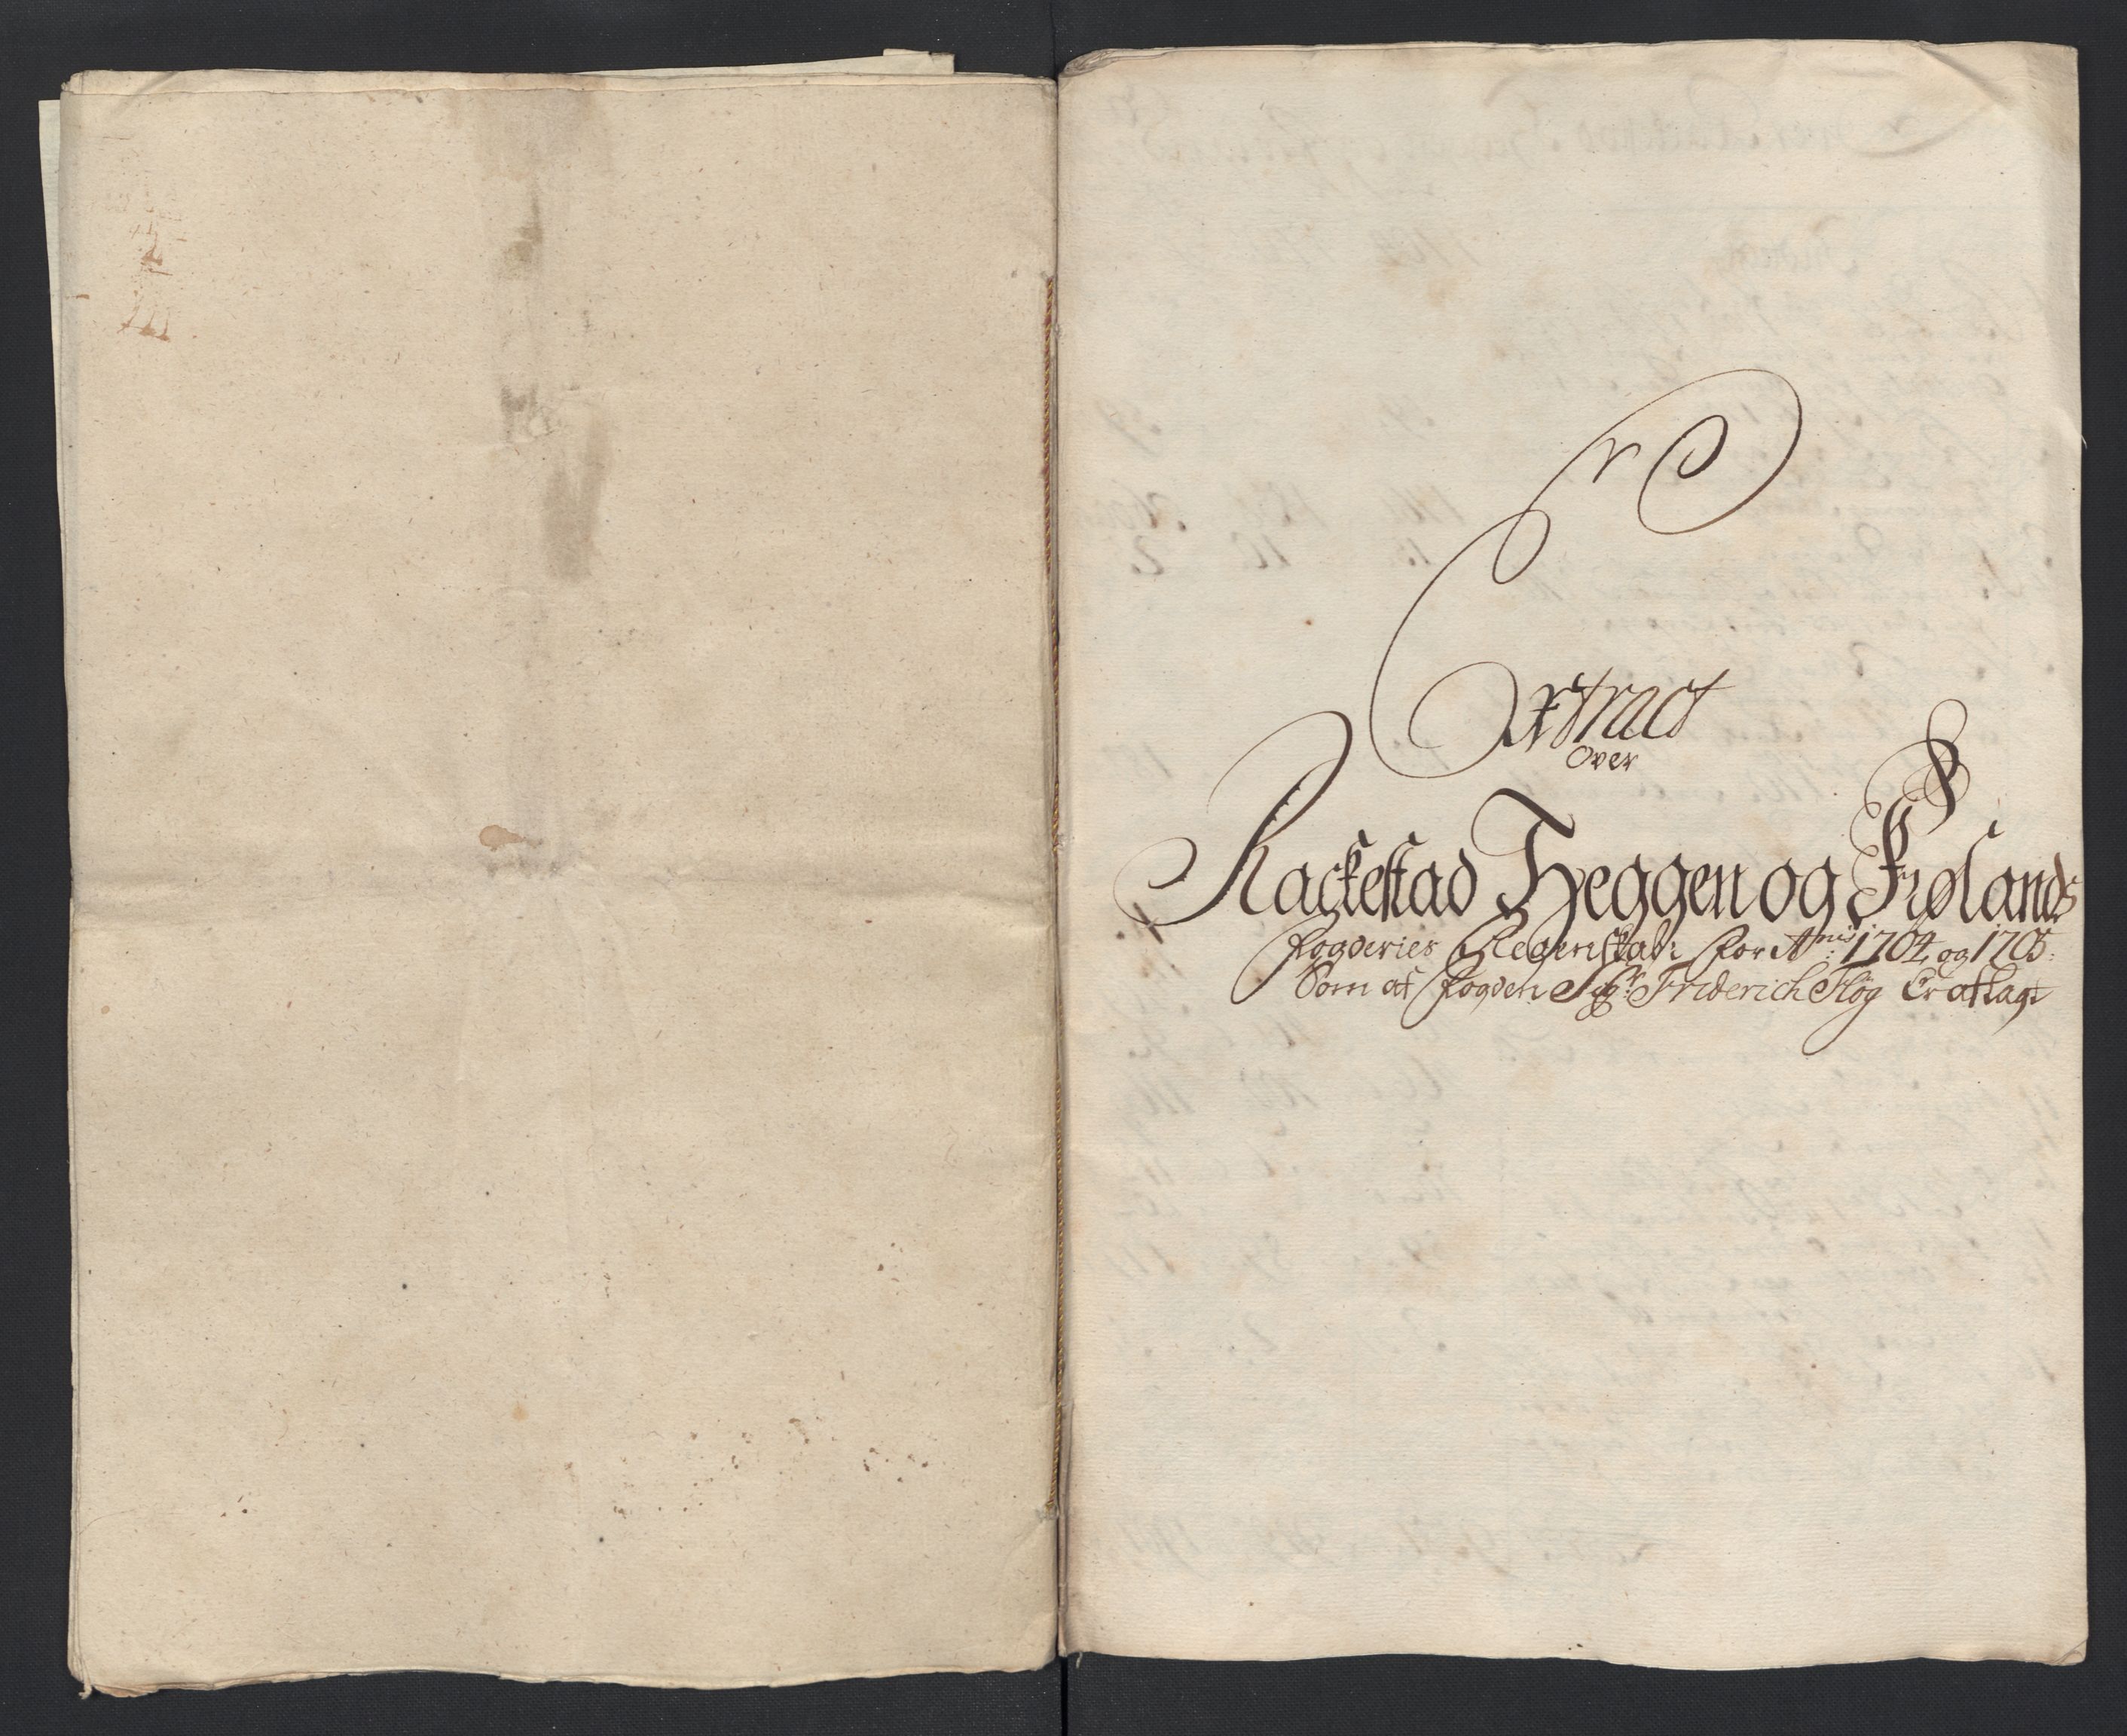 Extract
Over
Rackestad Heggen og Frølands
fogderies Regenskab: for A:nis 1704 og 1705:
Som af fogden Sr: Friderich Fløg Er aflagt